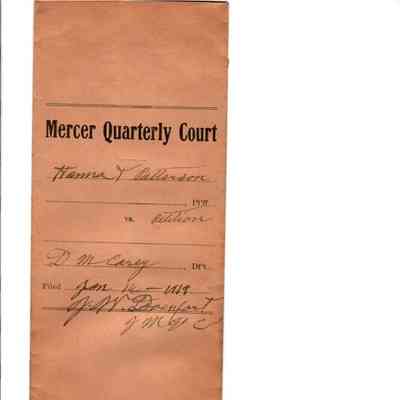 Mercer Quarterly Court
Hanna & Patterson
PTFF.
vs. Petition
D M Carey DFT.
Filed Jan 14 - 1919
J. W. Davenport
J M Q C